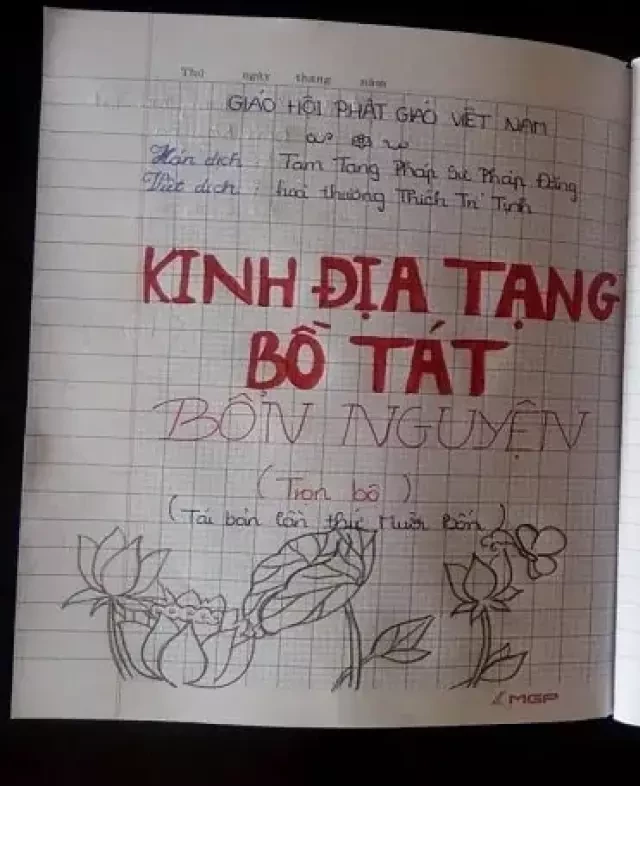 Thứ ngày tháng năm
GIÁO HỘI PHẬT GIÁO VIỆT NAM
Hán dịch : Tam Tạng Pháp Sư Pháp Đăng
Việt dịch : hoà thượng Thích Trí Tịnh
KINH ĐỊA TẠNG
BỒ TÁT
BỔN NGUYỆN
(Trọn bộ)
(Tái bản lần thứ Mười Bốn)
MGP